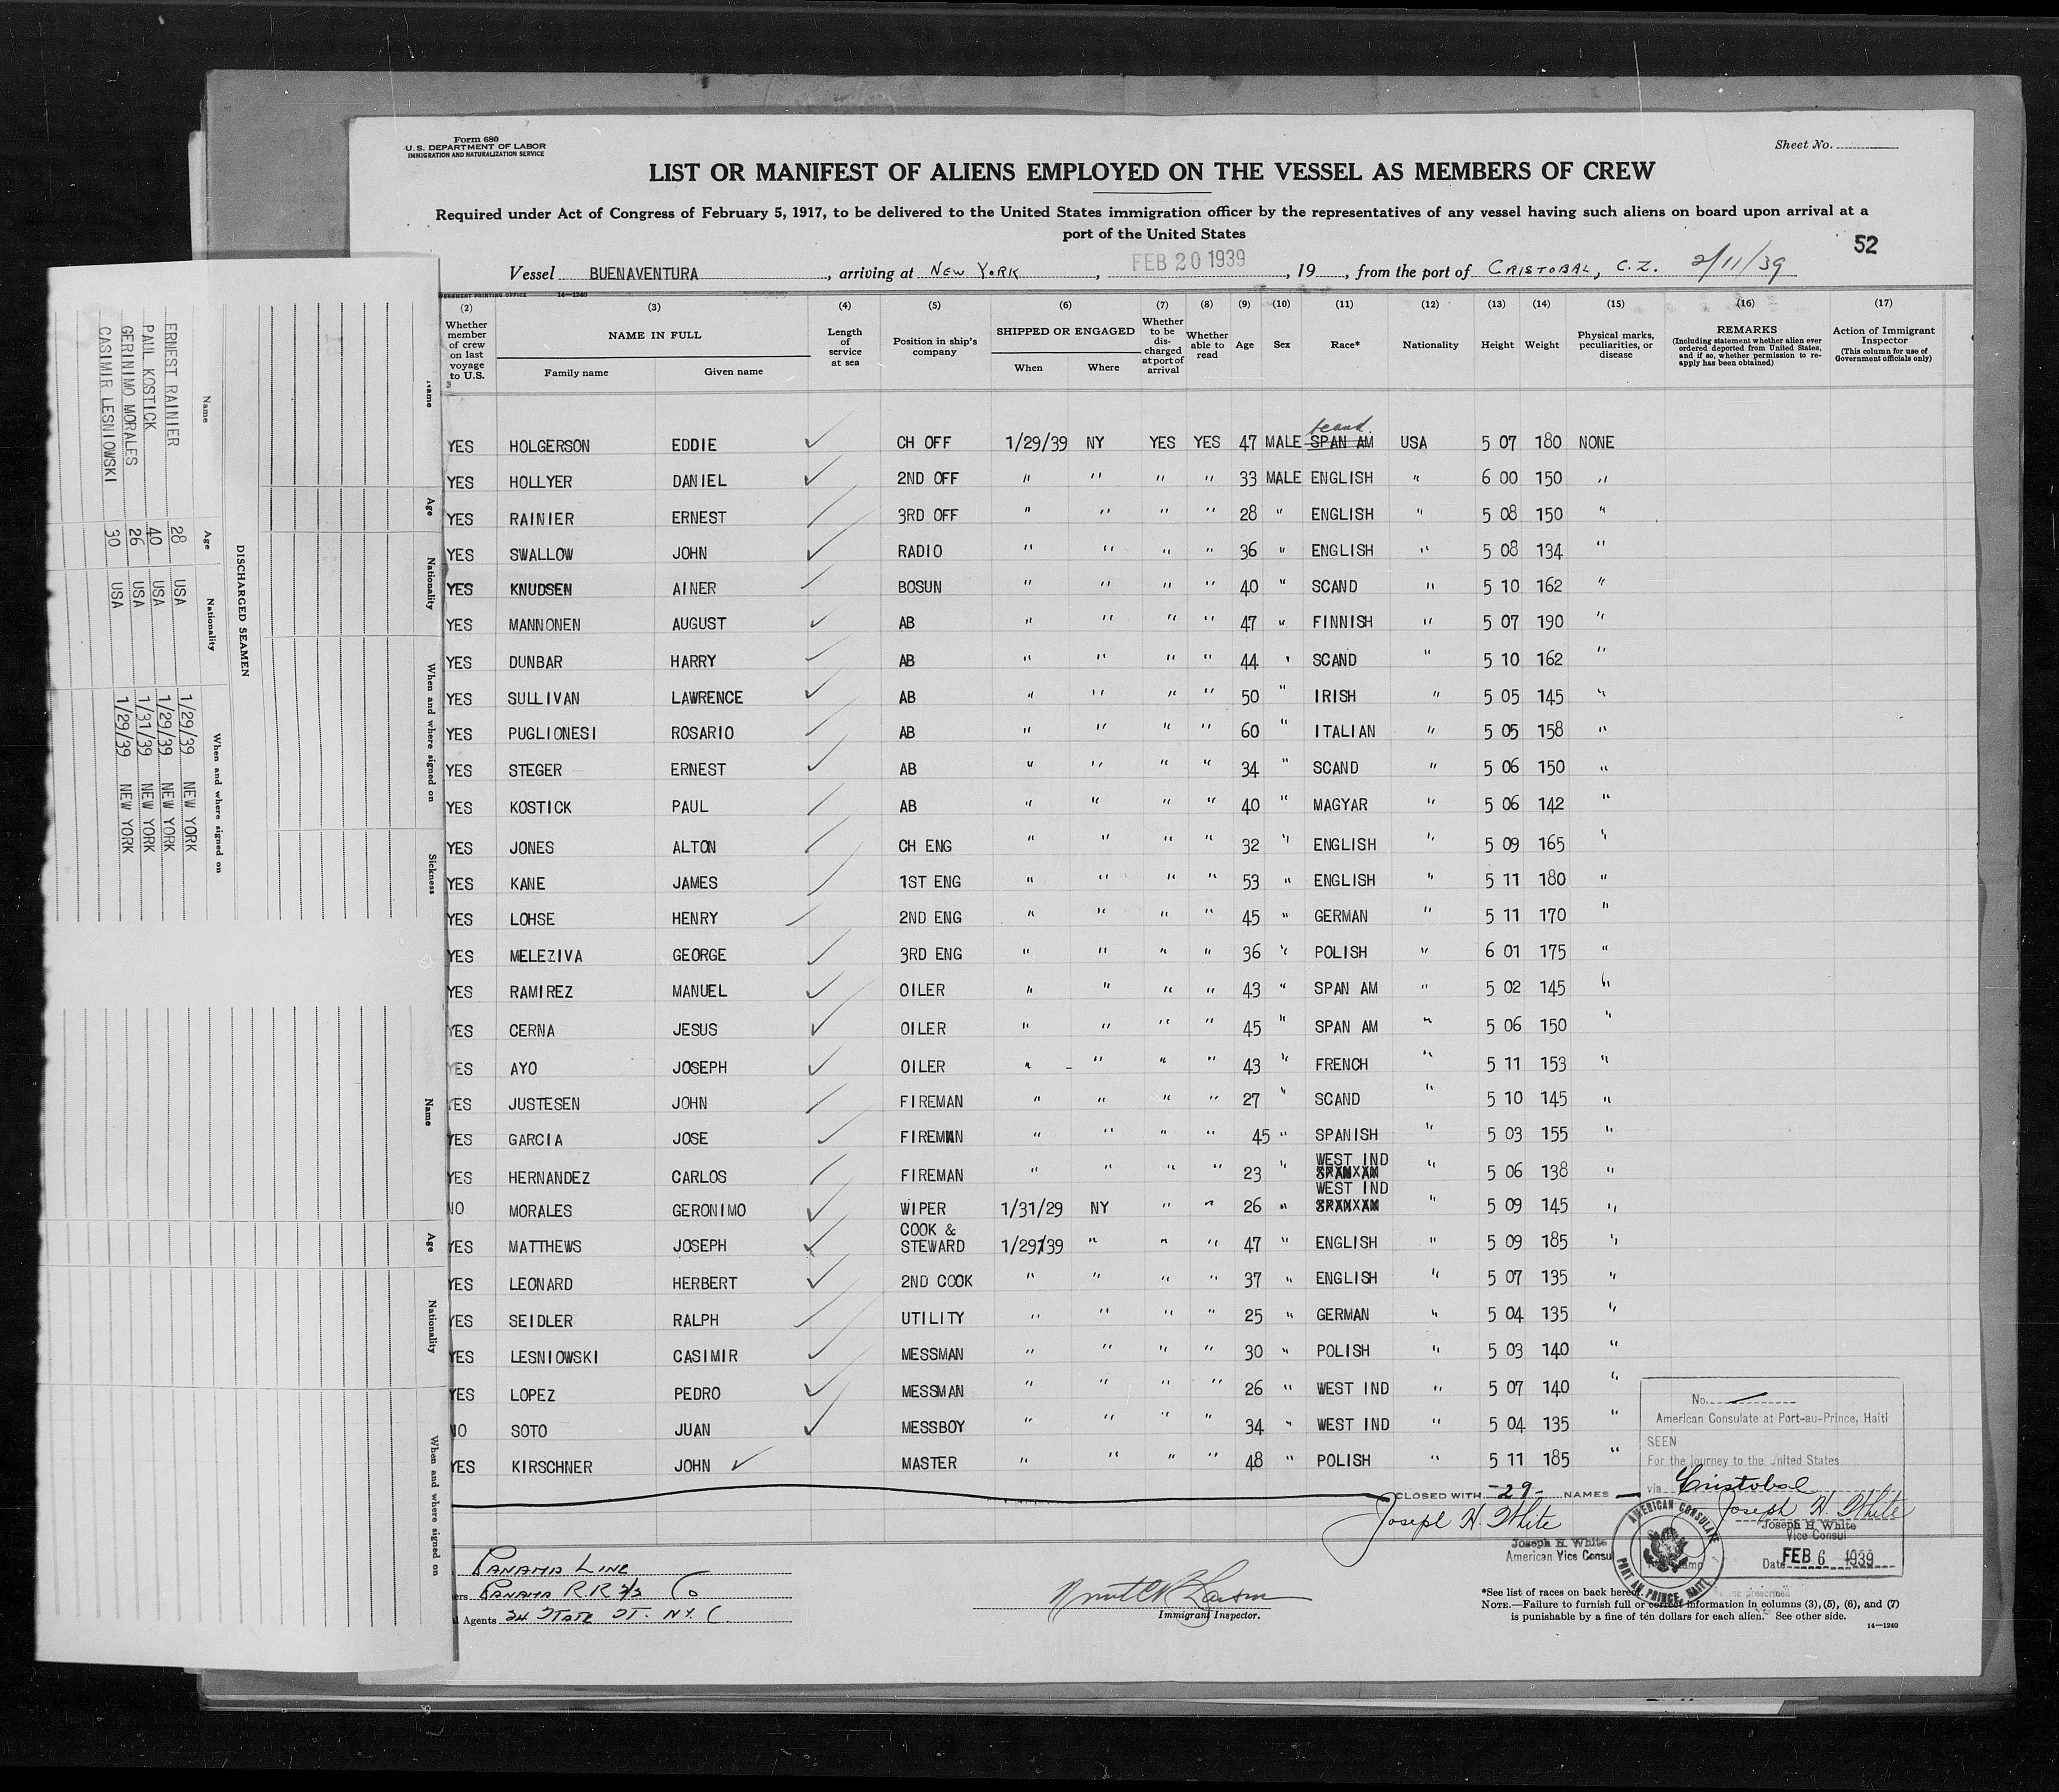 Form 680
U.S. DEPARTMENT OF LABOR
IMMIGRATION AND NATURALIZATION SERVICE
Sheet No.
LIST OR MANIFEST OF ALIENS EMPLOYED ON THE VESSEL AS MEMBERS OF CREW
Required under Act of Congress of February 5, 1917, to be delivered to the United States immigration officer by the representatives of any vessel having such aliens on board upon arrival at a
port of the United States
52
Vessel BUENAVENTURA, arriving at NEW YORK, FEB 20 1939, 19, from the port of CRISTOBAL, C.Z. 2/11/39
(2) (3) (4) (5) (6) (7) (8) (9) (10) (11) (12) (13) (14) (15) (16) (17)
Whether member of crew on last voyage to U.S. NAME IN FULL Family name Given name Length of service at sea Position in ship's company SHIPPED OR ENGAGED When Where Whether to be discharged at port of arrival Whether able to read Age Sex Race* Nationality Height Weight Physical marks, peculiarities, or disease REMARKS (Including statement whether alien ever ordered deported from United States, and if so, whether permission to reapply has been obtained) Action of Immigrant Inspector (This column for use of Government officials only)
Scand.
YES HOLGERSON EDDIE ✓ CH OFF 1/29/39 NY YES YES 47 MALE SPAN AM USA 5 07 180 NONE
YES HOLLYER DANIEL ✓ 2ND OFF " " " " 33 MALE ENGLISH " 6 00 150 "
YES RAINIER ERNEST 3RD OFF " " " " 28 " ENGLISH " 5 08 150 "
YES SWALLOW JOHN ✓ RADIO " " " " 36 " ENGLISH " 5 08 134 "
YES KNUDSEN AINER ✓ BOSUN " " " " 40 " SCAND " 5 10 162 "
YES MANNONEN AUGUST ✓ AB " " " " 47 " FINNISH " 5 07 190 "
YES DUNBAR HARRY ✓ AB " " " " 44 " SCAND " 5 10 162 "
YES SULLIVAN LAWRENCE ✓ AB " " " " 50 " IRISH " 5 05 145 "
YES PUGLIONESI ROSARIO ✓ AB " " " " 60 " ITALIAN " 5 05 158 "
YES STEGER ERNEST ✓ AB " " " " 34 " SCAND " 5 06 150 "
YES KOSTICK PAUL AB " " " " 40 " MAGYAR " 5 06 142 "
YES JONES ALTON ✓ CH ENG " " " " 32 " ENGLISH " 5 09 165 "
YES KANE JAMES 1ST ENG " " " " 53 " ENGLISH " 5 11 180 "
YES LOHSE HENRY 2ND ENG " " " " 45 " GERMAN " 5 11 170 "
YES MELEZIVA GEORGE ✓ 3RD ENG " " " " 36 " POLISH " 6 01 175 "
YES RAMIREZ MANUEL ✓ OILER " " " " 43 " SPAN AM " 5 02 145 "
YES CERNA JESUS ✓ OILER " " " " 45 " SPAN AM " 5 06 150 "
YES AYO JOSEPH ✓ OILER " " " " 43 " FRENCH " 5 11 153 "
YES JUSTESEN JOHN ✓ FIREMAN " " " " 27 " SCAND " 5 10 145 "
YES GARCIA JOSE ✓ FIREMAN " " " " 45 " SPANISH " 5 03 155 "
WEST IND
YES HERNANDEZ CARLOS ✓ FIREMAN " " " " 23 " SPANXAM " 5 06 138 "
WEST IND
NO MORALES GERONIMO ✓ WIPER 1/31/29 NY " " 26 " SPANXAM " 5 09 145 "
COOK &
YES MATTHEWS JOSEPH ✓ STEWARD 1/29/39 " " " 47 " ENGLISH " 5 09 185 "
YES LEONARD HERBERT ✓ 2ND COOK " " " " 37 " ENGLISH " 5 07 135 "
YES SEIDLER RALPH UTILITY " " " " 25 " GERMAN " 5 04 135 "
YES LESNIOWSKI CASIMIR ✓ MESSMAN " " " " 30 " POLISH " 5 03 140 "
YES LOPEZ PEDRO ✓ MESSMAN " " " " 26 " WEST IND " 5 07 140 "
NO SOTO JUAN ✓ MESSBOY " " " " 34 " WEST IND " 5 04 135 "
YES KIRSCHNER JOHN ✓ MASTER " " " " 48 " POLISH " 5 11 185 "
CLOSED WITH -29- NAMES
Joseph H. White
Joseph H. White
American Vice Consul
No.
American Consulate at Port-au-Prince, Haiti
SEEN
For the journey to the United States
via Cristobal
Joseph H. White
Joseph H. White
Vice Consul
Date FEB 6 1939
AMERICAN CONSULATE
PORT AU PRINCE, HAITI
PANAMA LINE
PANAMA R.R S/S Co
Agents 24 STATE ST. N.Y. C.
Immigrant Inspector.
*See list of races on back hereof.
NOTE.—Failure to furnish full or correct information in columns (3), (5), (6), and (7)
is punishable by a fine of ten dollars for each alien. See other side.
14—1240
DISCHARGED SEAMEN
Name Age Nationality When and where signed on
ERNEST RAINIER 28 USA 1/29/39 NEW YORK
PAUL KOSTICK 40 USA 1/29/39 NEW YORK
GERINIMO MORALES 26 USA 1/31/39 NEW YORK
CASIMIR LESNIOWSKI 30 USA 1/29/39 NEW YORK
Name Age Nationality When and where signed on Sickness
Name Age Nationality When and where signed on